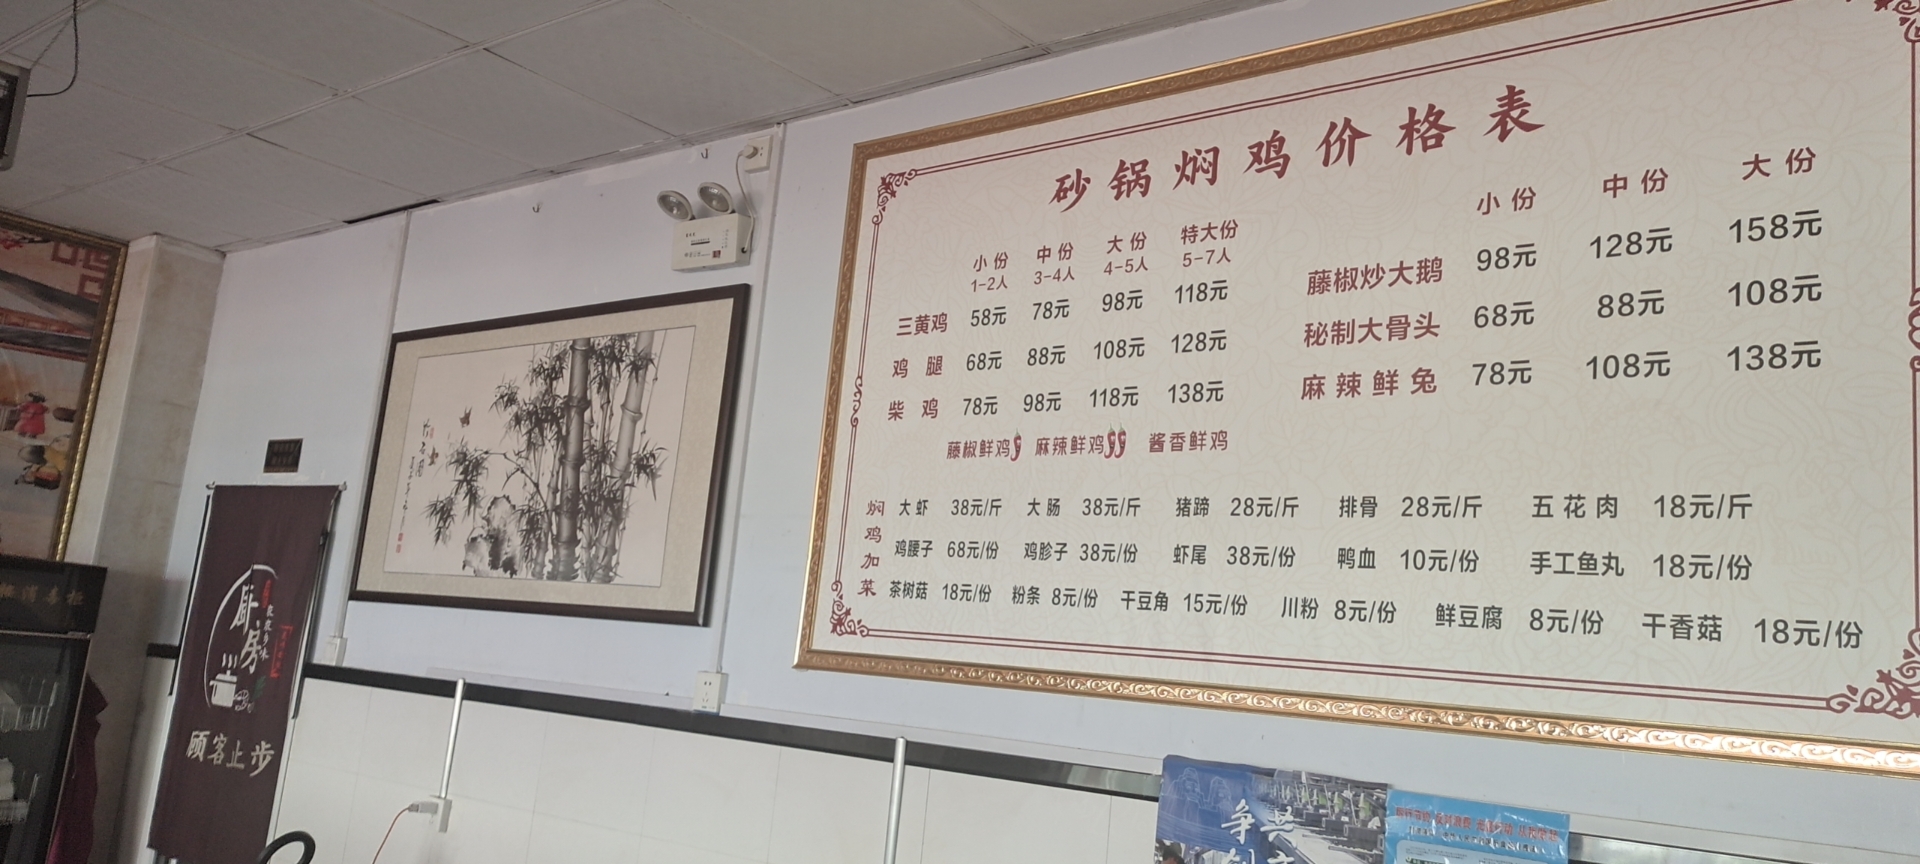 砂锅焖鸡价格表
小份 中份 大份 特大份
1-2人 3-4人 4-5人 5-7人
三黄鸡 58元 78元 98元 118元
鸡腿 68元 88元 108元 128元
柴鸡 78元 98元 118元 138元
藤椒鲜鸡 麻辣鲜鸡 酱香鲜鸡
小份 中份 大份
藤椒炒大鹅 98元 128元 158元
秘制大骨头 68元 88元 108元
麻辣鲜兔 78元 108元 138元
焖鸡加菜
大虾 38元/斤 大肠 38元/斤 猪蹄 28元/斤 排骨 28元/斤 五花肉 18元/斤
鸡腰子 68元/份 鸡胗子 38元/份 虾尾 38元/份 鸭血 10元/份 手工鱼丸 18元/份
茶树菇 18元/份 粉条 8元/份 干豆角 15元/份 川粉 8元/份 鲜豆腐 8元/份 干香菇 18元/份
厨房
顾客止步
消毒柜
争 共
创